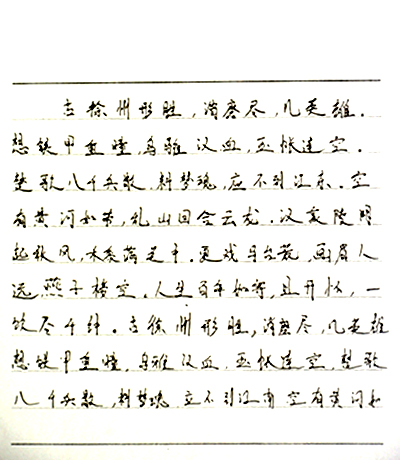 古徐州形胜,消磨尽,几英雄.
想铁甲重瞳,乌骓汉血,玉帐连空.
楚歌八千兵散,料梦魂,应不到江东.空
有黄河如带,乱山回合云龙.汉家陵阙
起秋风,禾黍满关中.更戏马台荒,画眉人
远,燕子楼空.人生百年如寄,且开怀,一
饮尽千钟.古徐州形胜,消磨尽,几英雄
想铁甲重瞳,乌骓汉血,玉帐连空,楚歌
八千兵散,料梦魂,应不到江南空有黄河如